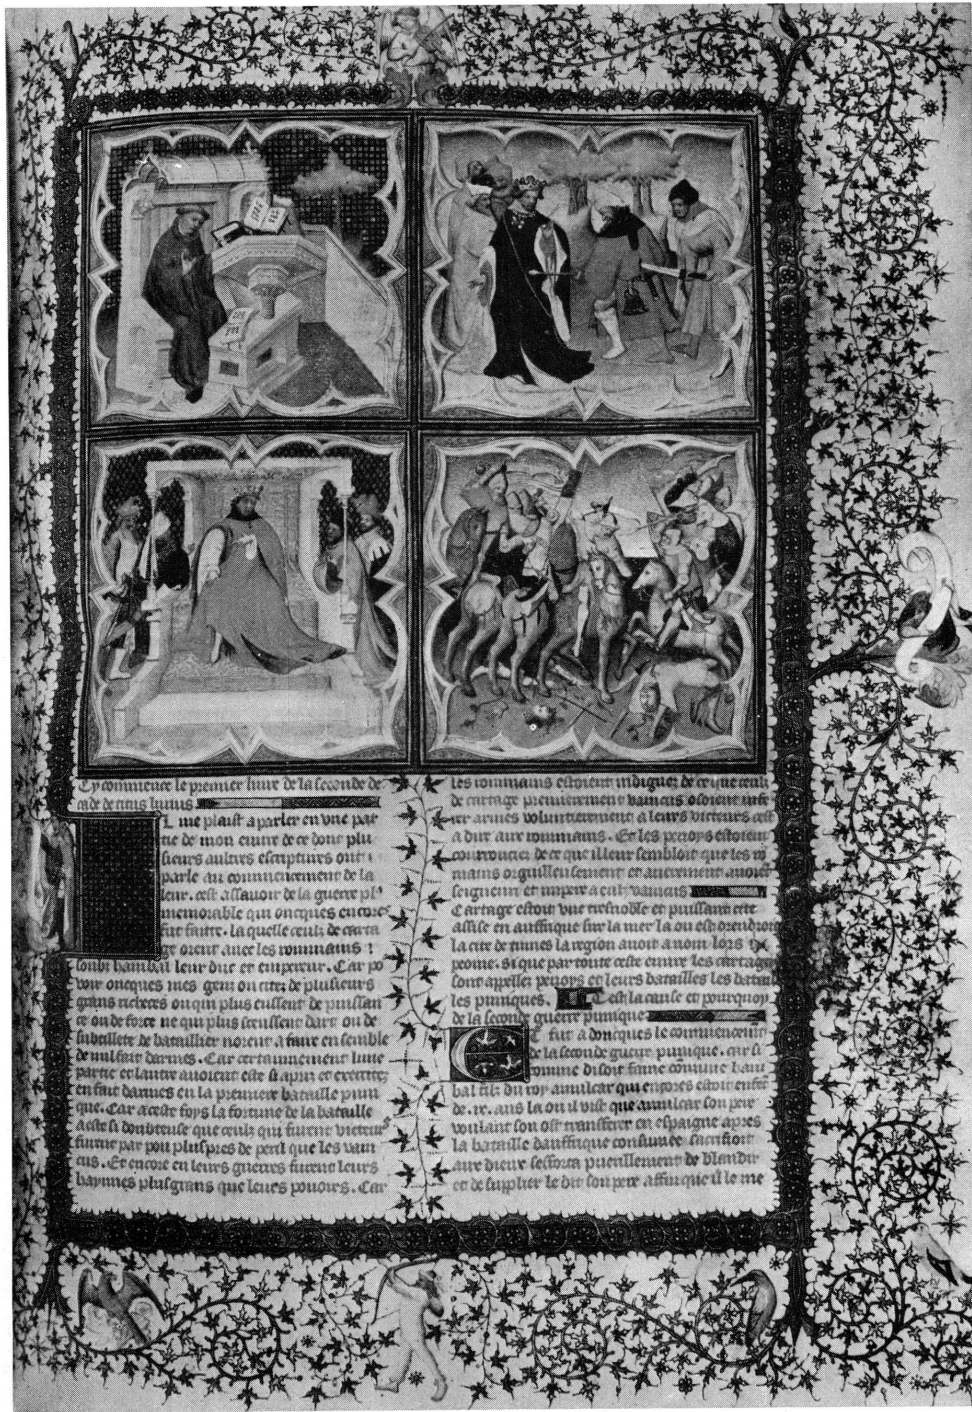 Cy commence le premier livre de la seconde de
cade de titus livius
l me plaist a parler en une par
tie de mon euvre de ce dont plu
sieurs aultres escriptures ont
parle au commencement de la
leur. cest assavoir de la guerre pl'
memorable qui oncques encores
fut faitte. la quelle ceulx de carta
ge orent avec les rommains
soubz hanibal leur duc et empereur. Car po
voir oncques mes gens ou citez de plusieurs
grans richeces ou qui plus eussent de puissan
ce ou de force ne qui plus sceussent dart ou de
subtillete de bataillier norent a faire ensemble
de nul fait darmes. Car certainnement lune
partie et lautre avoient este si apris et exercitez
en fait darmes en la premiere bataille puni
que. Car a ceste foys la fortune de la bataille
a este si doubteuse que ceulx qui furent victeurs
furent par pou plus pres de peril que les vain
cus. Et encore en leurs guerres furent leurs
haynnes plus grans que leurs povoirs. Car
les rommains estoient indignez de ce que ceulx
de cartage premierement vaincus osoient
armes voluntairement a leurs victeurs cest
a dire aux rommains. Et les penoys estoient
courrouciez de ce que il leur sembloit que les ro
mains orguilleusement et averement avoient
seigneuri et empere a eulx vaincus
Cartage estoit une tresnoble et puissant cite
assise en auffrique sur la mer la ou est orendroit
la cite de tunes la region avoit a nom lors
peome. si que par toute ceste euvre les cartag
sont appellez penoys et leurs batailles les batail
les puniques. est la cause et pourquoy
de la seconde guerre punique
C fut adoncques le commencement
de la seconde guerre punique. car si
comme disoit fame commune hani
bal filz du roy amulcar qui encores estoit enfes
de .ix. ans la ou il vist que amulcar son pere
voulant son ost transferer en espaigne apres
la bataille dauffrique consumee sacrifioit
aux dieux sefforca puerillement de blandir
et de supplier le dit son pere affin que il le me